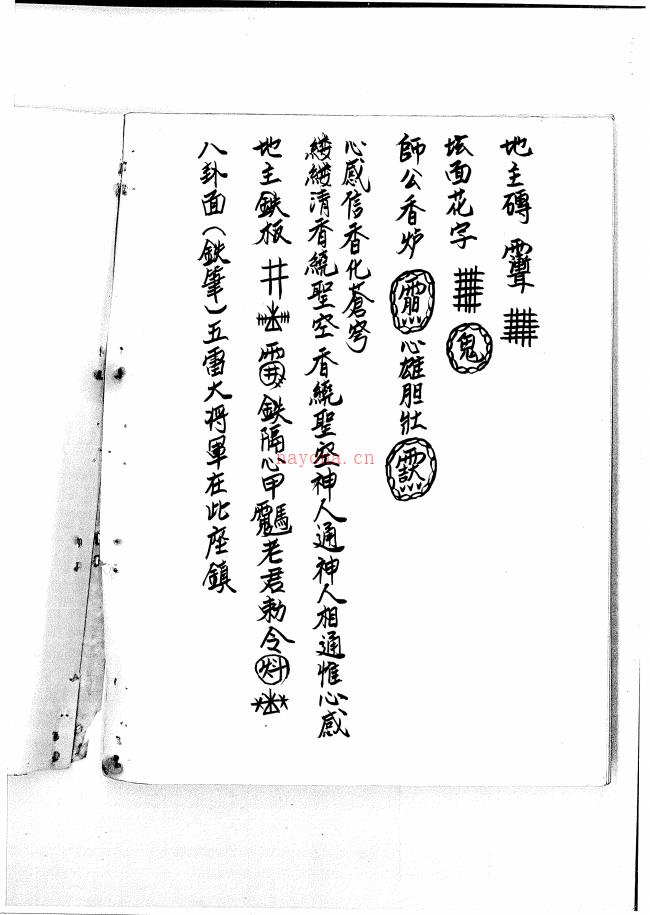 地主磚
坛面花字 鬼
師公香炉 心雄胆壮
心感信香化蒼穹
縷縷清香繞聖空香繞聖空神人通神人相通惟心感
地主鉄板 井 鉄隔心甲 老君勅令
八卦面(鉄筆)五雷大将軍在此座鎮
nayona.cn